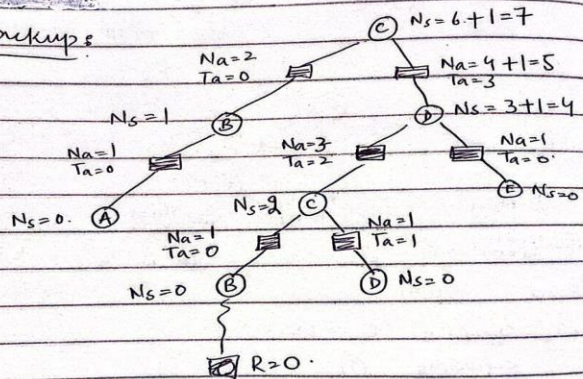 Backup:
C Ns = 6 + 1 = 7
Na = 2
Ta = 0
Na = 4 + 1 = 5
Ta = 3
Ns = 1 B
D Ns = 3 + 1 = 4
Na = 1
Ta = 0
Na = 3
Ta = 2
Na = 1
Ta = 0.
Ns = 0. A
Ns = 2 C
E Ns = 0
Na = 1
Ta = 0
Na = 1
Ta = 1
Ns = 0 B
D Ns = 0
R = 0.